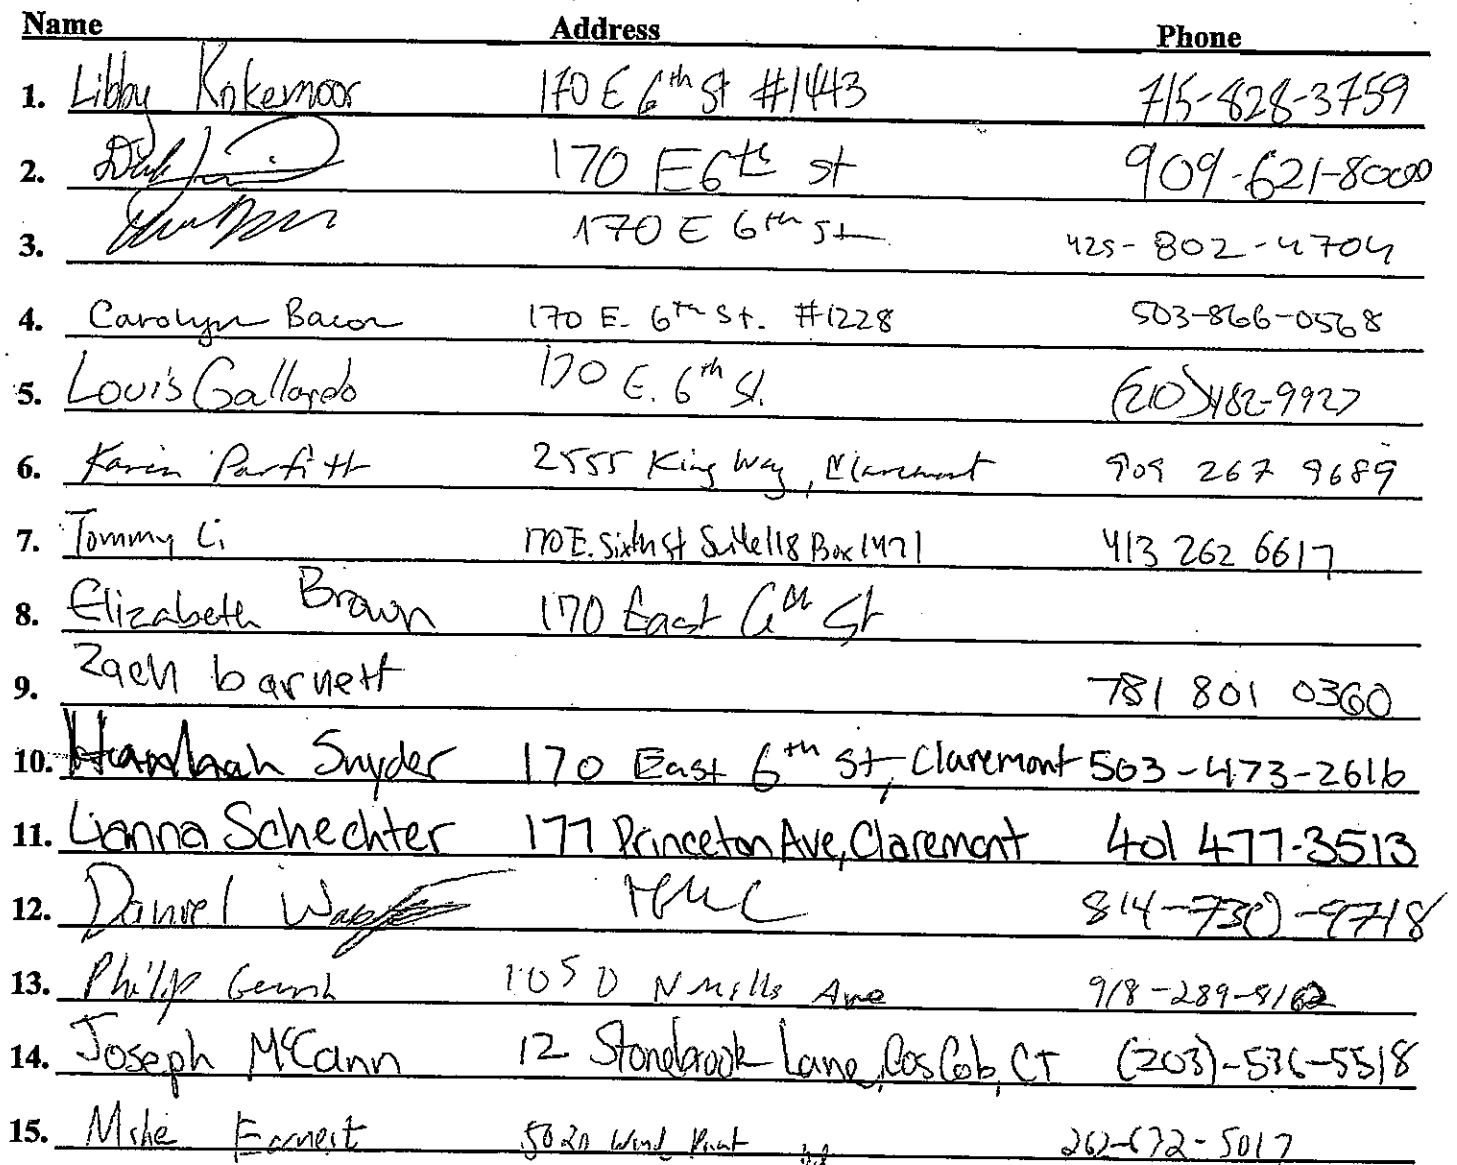 Name Address Phone
1. Libby Knkemoor 170 E 6th St #1443 715-828-3759
2. 170 E 6th St 909-621-8000
3. 170 E 6th St 425-802-4704
4. Carolyn Bacon 170 E. 6th St. #1228 503-866-0568
5. Louis Gallardo 170 E. 6th St. (210)482-9927
6. Karin Parfitt 2555 King Way, Claremont 909 267 9689
7. Tommy Li 170 E. Sixth St Suite 118 Box 1471 413 262 6617
8. Elizabeth Brown 170 East 6th St
9. Zach barnett 781 801 0360
10. Hannah Snyder 170 East 6th St, Claremont 503-473-2616
11. Lianna Schechter 177 Princeton Ave, Claremont 401 477-3513
12. Daniel HMC 814-730-9718
13. Philip 1050 N Mills Ave
14. Joseph McCann 12 Stonebrook Lane, Cos Cob, CT (203)-536-5518
15. Mike Earnest 5020 Wind Point 262-672-5017